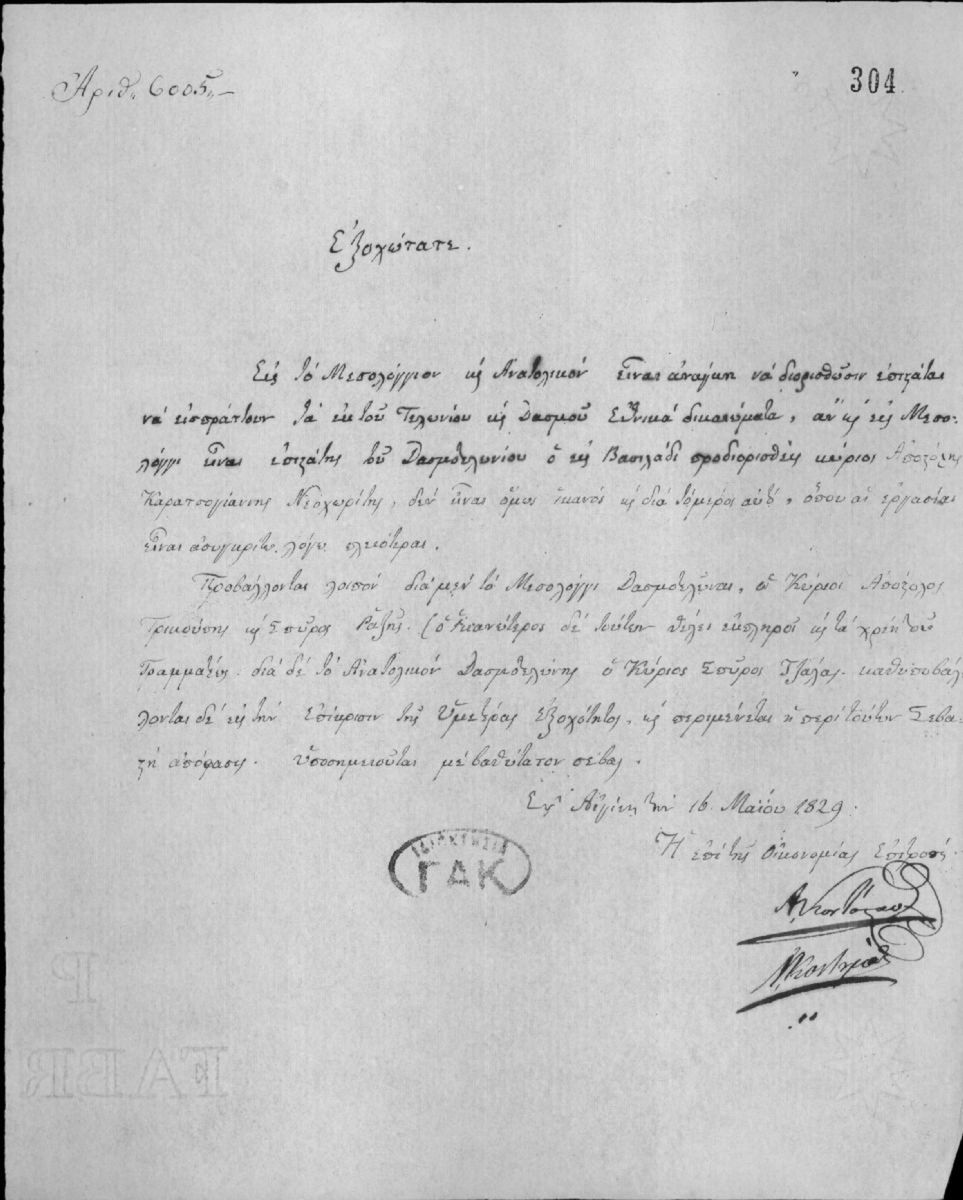 Ἀριθ. 6005.
304
Ἐξοχώτατε.
Εἰς τὸ Μεσολόγγιον καὶ Ἀνατολικὸν εἶναι ἀνάγκη νὰ διορισθῶσιν ἐπιστάται
νὰ εἰσπράττουν τὰ ἐκ τοῦ Τελωνίου καὶ Δασμοῦ Ἐθνικὰ δικαιώματα, ἂν καὶ εἰς Μεσο-
λόγγι εἶναι ἐπιστάτης τοῦ Δασμοτελωνίου ὁ εἰς Βασιλάδι προδιορισθεὶς κύριος Ἀποστόλης
Καρατσογιάννης Νεοχωρίτης, δὲν εἶναι ὅμως ἱκανὸς καὶ διὰ τὸ μέρος αὐτὸ, ὅπου αἱ ἐργασίαι
εἶναι ἀσυγκρίτῳ λόγῳ πλειότεραι.
Προβάλλονται λοιπὸν διὰ μὲν τὸ Μεσολόγγι Δασμοτελῶναι, οἱ Κύριοι Ἀπόστολος
Τρικούπης καὶ Σπῦρος Ῥάζης. (ὁ ἱκανώτερος δὲ τούτων θέλει ἐκπληροῖ καὶ τὰ χρέη τοῦ
Γραμματέως. διὰ δὲ τὸ Ἀνατολικὸν Δασμοτελώνης ὁ Κύριος Σπῦρος Τζάλας. καθυποβάλ-
λονται δὲ εἰς τὴν ἐπίκρισιν τῆς Ὑμετέρας Ἐξοχότητος, καὶ περιμένεται ἡ περὶ τούτων Σεβα-
στὴ ἀπόφασις. ὑποσημειοῦται μὲ βαθύτατον σέβας.
Ἐν Αἰγίνῃ τὴν 16 Μαΐου 1829.
Ἡ ἐπὶ τῆς Οἰκονομίας Ἐπιτροπή.
ΙΔΙΟΚΤΗΣΙΑ
ΓΑΚ
P
FABR